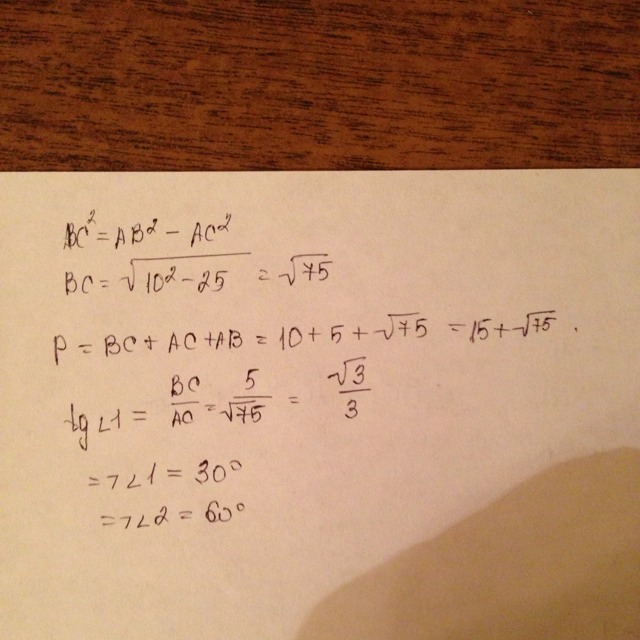 BC² = AB² − AC²
BC = √(10² − 25) = √75
P = BC + AC + AB = 10 + 5 + √75 = 15 + √75 .
tg∠1 = BC/AC = 5/√75 = √3/3
=> ∠1 = 30°
=> ∠2 = 60°